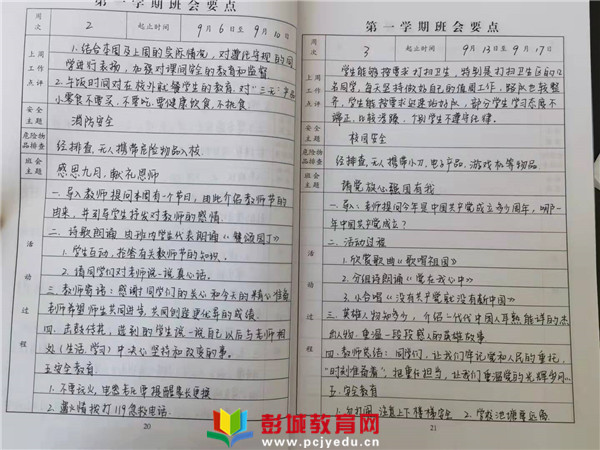 第一学期班会要点
周次 2 起止时间 9月6日至9月10日
上周工作点评
1.结合本周及上周的实际情况，对遵守常规的同
学进行表扬，加强对课间安全的教育和监督
2.午饭时间对在校外就餐学生的教育，对"三无"产品
小零食不要买，不要吃，要健康饮食，不挑食
安全主题 消防安全
危险物品排查 经排查，无人携带危险物品入校.
班会主题 感恩九月，献礼恩师
活动过程
一.导入教师提问本周有一个节日，由此介绍教师节的
由来，并引导学生抒发对教师的感情
二.诗歌朗诵 由班内学生代表朗诵《赞颂园丁》
1.学生互动，抢答有关教师节的知识.
2.请同学们对老师说一说真心话.
三.教师寄语：感谢同学们的关心和今天的精心准备
老师希望师生共同进步，共同创造更优异的成绩.
四.击鼓传花，选到的学生谈一谈自己以后与老师相
处(生活、学习)中决心坚持和改变的事。
五安全教育
1.不要玩火，电器老化要提醒家长更换
2.遇火情拨打119急救电话.
20
第一学期班会要点
周次 3 起止时间 9月13日至9月17日
上周工作点评
学生能够按要求打扫卫生，特别是打扫卫生区的12
名同学，每天坚持做好自己的值周工作，路队也较整
齐，学生能按要求迅速站好队，部分学生学习态度不
端正，比较浮躁，个别学生不遵守纪律。
安全主题 校园安全
危险物品排查 经排查，无人携带小刀，电子产品，游戏机等物品
班会主题 请党放心强国有我
活动过程
一.导入：老师提问今年是中国共产党成立多少周年，哪一
年中国共产党成立？
二.活动过程
1.欣赏歌曲《歌唱祖国》
2.分组诗朗诵《党在我心中》
3.小合唱《没有共产党就没有新中国》
三.英雄人物知多少，介绍一代代中国人耳熟能详的杰
出人物.重温一段段感人的英雄故事
四.教师总结：同学们，让我们牢记党和人民的重托，
"时刻准备着"，担重任担当，让我们重温党的光辉岁月
五.安全教育
21
彭城教育网
www.pcjyedu.cn